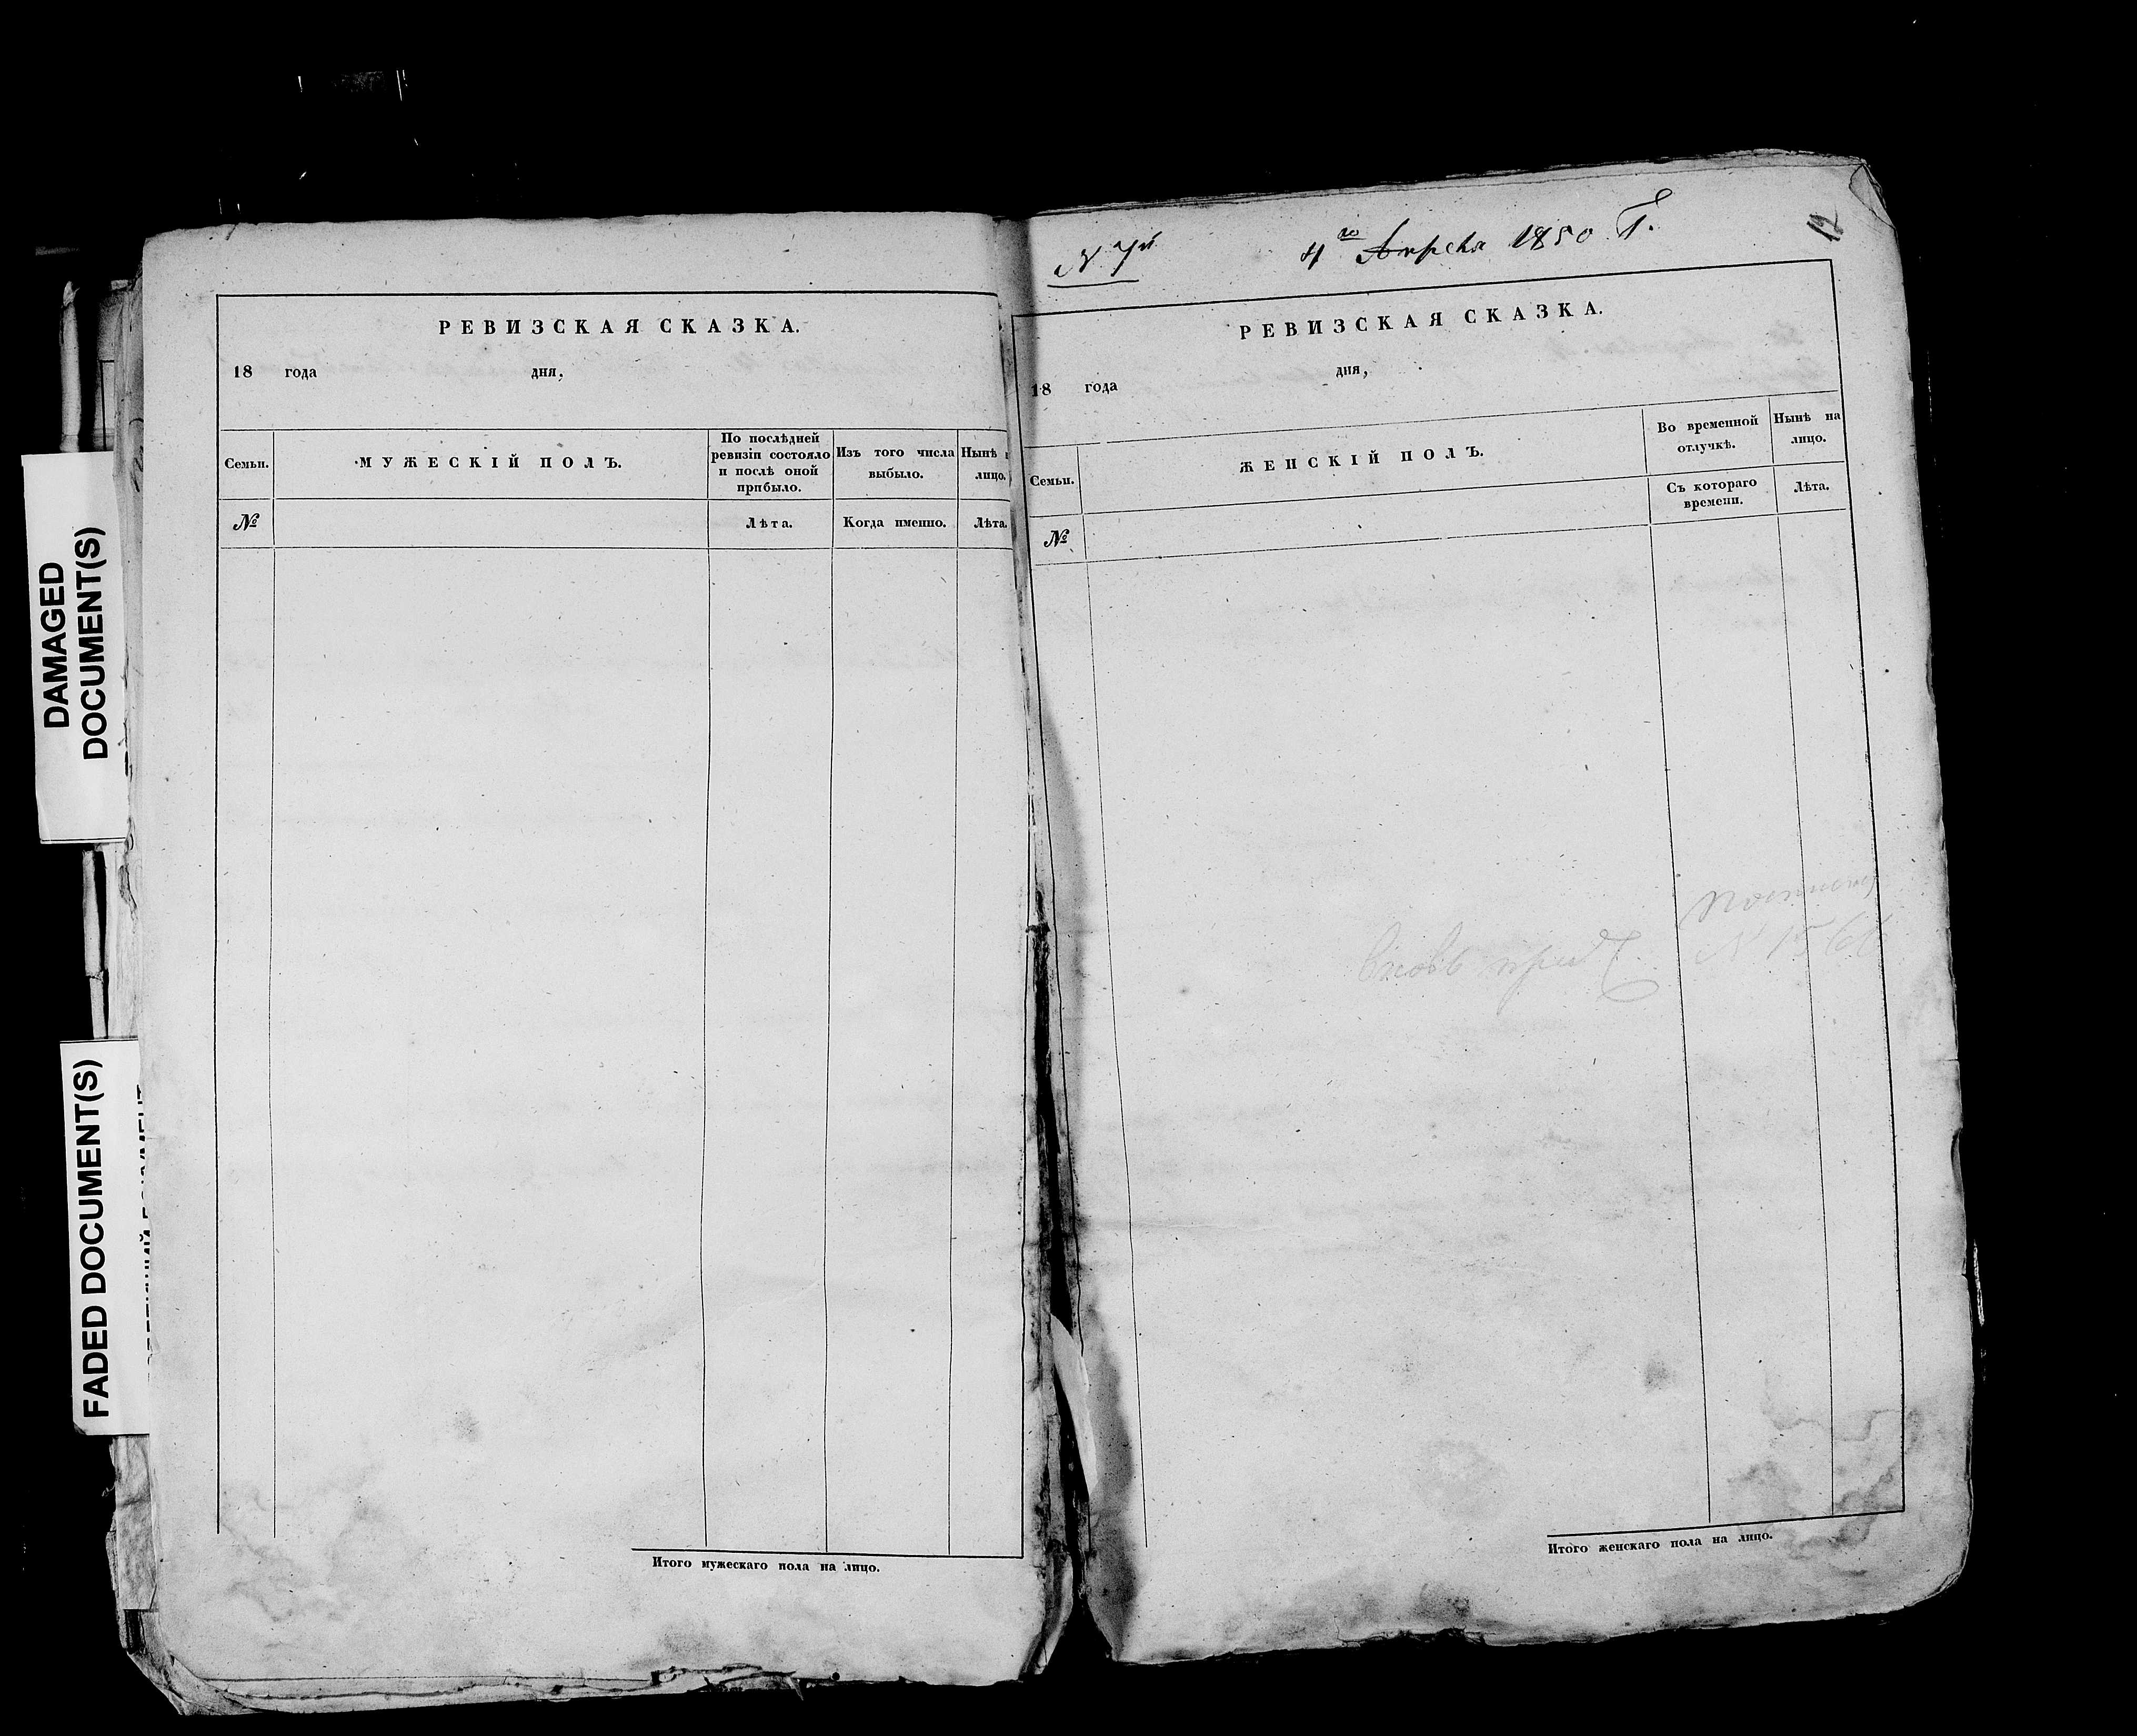 DAMAGED
DOCUMENT(S)
FADED DOCUMENT(S)
РЕВИЗСКАЯ СКАЗКА.
18 года дня,
Семьи.
МУЖЕСКІЙ ПОЛЪ.
По послѣдней
ревизіи состояло
и послѣ оной
прибыло.
Изъ того числа
выбыло.
Нынѣ
лицо.
№
Лѣта.
Когда именно.
Лѣта.
Итого мужескаго пола на лицо.
4го Апреля 1850 Г.
12
РЕВИЗСКАЯ СКАЗКА.
18 года дня,
Семьи.
ЖЕНСКІЙ ПОЛЪ.
Во временной
отлучкѣ.
Нынѣ на
лицо.
Съ котораго
времени.
Лѣта.
№
Вновь
Итого женскаго пола на лицо.